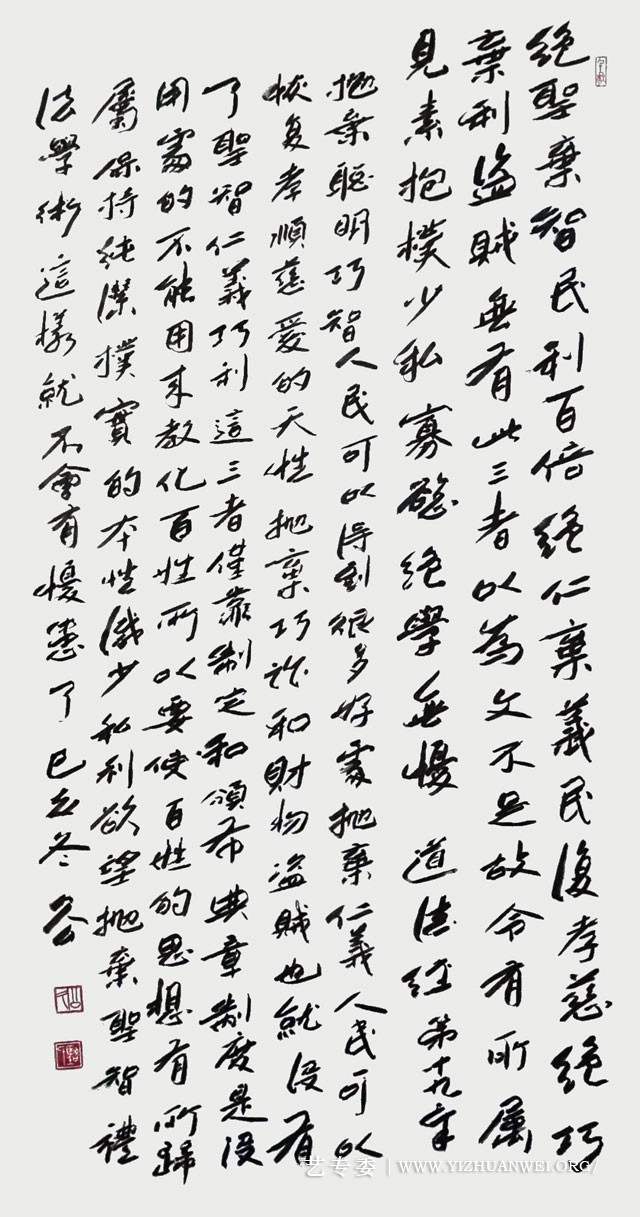 絕聖棄智民利百倍絕仁棄義民復孝慈絕巧
棄利盜賊無有此三者以為文不足故令有所屬
見素抱樸少私寡慾絕學無憂 道德經第十九章
拋棄聰明巧智人民可以得到很多好處拋棄仁義人民可以
恢复孝順慈愛的天性拋棄巧詐和財物盜賊也就没有
了聖智仁義巧利這三者僅靠制定和頒布典章制度是没
用處的不能用来教化百姓所以要使百姓的思想有所歸
屬保持純潔樸實的本性減少私利欲望拋棄聖智禮
法學術這樣就不會有憂患了 己亥冬
艺专委 | WWW.YIZHUANWEI.ORG/